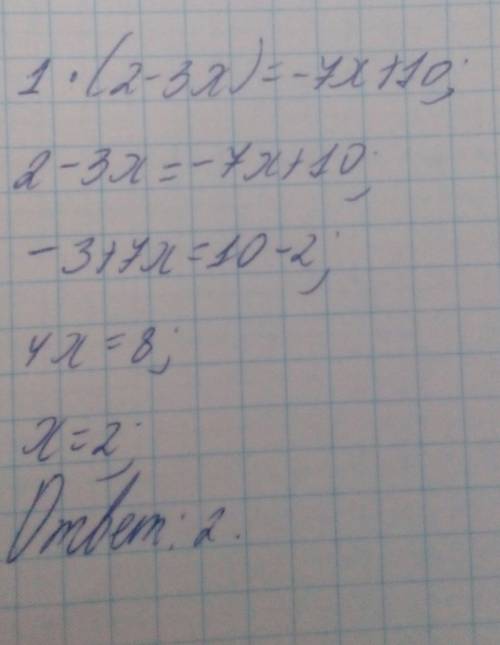 1 · (2 - 3x) = -7x + 10;
2 - 3x = -7x + 10;
-3 + 7x = 10 - 2;
4x = 8;
x = 2;
Ответ: 2.